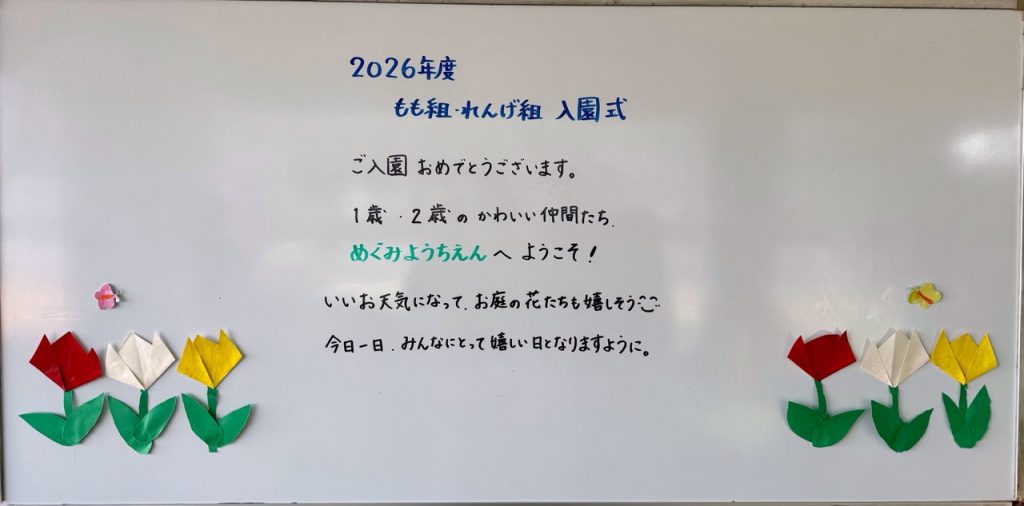 2026年度
もも組・れんげ組 入園式
ご入園 おめでとうございます。
1歳・2歳の かわいい仲間たち、
めぐみようちえん へ ようこそ!
いいお天気になって、お庭の花たちも嬉しそう
今日一日、みんなにとって嬉しい日となりますように。